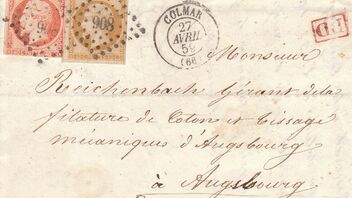 COLMAR
27
AVRIL
59
(66)
PD
908
Monsieur
Reichenbach Gérant de la
filature de Coton et tissage
mécaniques d'Augsbourg
à Augsbourg